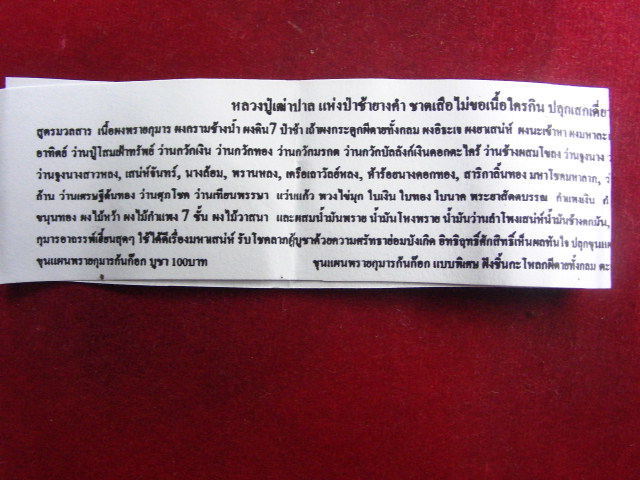 หลวงปู่เฒ่าปาล แห่งป่าช้ายางคำ ชาตเสือไม่ขอเนื้อใครกิน ปลุกเสกเดี่ย
สูตรมวลสาร เนื้อผงพรายกุมาร ผงกรามช้างน้ำ ผงดิน7 ป่าช้า เถ้าผงกระดูกผีตายทั้งกลม ผงอิธะเจ ผงยาเสน่ห์ ผงนะเข้าหา ผงมหาละ
อาทิตย์ ว่านปู่โสมเฝ้าทรัพย์ ว่านกวักเงิน ว่านกวักทอง ว่านกวักมรกต ว่านกวักบัลลังก์เงินดอกตะไคร้ ว่านช้างผสมโขลง ว่านจูงนาง
ว่านจูงนางสาวหลง, เสน่ห์จันทร์, นางล้อม, พรานหลง, เครือเถาวัลย์หลง, ห้าร้อยนางดอกทอง, สาริกาลิ้นทอง มหาโชคมหาลาภ,
ล้าน ว่านเศรษฐีต้นทอง ว่านศุภโชค ว่านเทียนพรรษา แว่นแก้ว พวงไข่มุก ใบเงิน ใบทอง ใบนาค พระยาสัตตบรรณ กำแพงเงิน
ขนุนทอง ผงไม้หว้า ผงไม้กำแพง 7 ชั้น ผงไม้วาสนา และผสมน้ำมันพราย น้ำมันโหงพราย น้ำมันว่านลำโพงเสน่ห์น้ำมันช้างตกมัน,
กุมารอาถรรพ์เฮี้ยนสุดๆ ใช้ได้ดีเรื่องมหาเสน่ห์ รับโชคลาภผู้บูชาด้วยความศรัทธาย่อมบังเกิด อิทธิฤทธิ์ศักดิ์สิทธิ์เห็นผลทันใจ ปลุกขุนแผ
ขุนแผนพรายกุมารก้นก๊อก บูชา 100บาท ขุนแผนพรายกุมารก้นก๊อก แบบพิเศษ ฝังชิ้นกะโหลกผีตายทั้งกลม ตะ